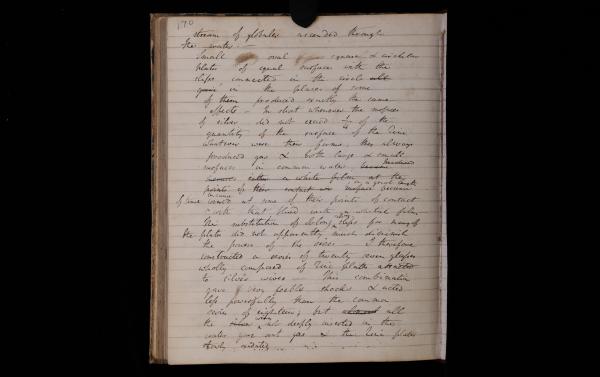 170
stream of globules ascended through
the water. —
Small oval square & circular
plates of equal surfaces with the
slips connected in the circle
in the places of some
of them produced exactly the same
effects — In short whenever the surfaces
of silver did not exceed of the
quantity of the surface of the Zinc
whatever were their forms, they always
produced gas & both large & small
surfaces in common water
a white film at the
points of their contact surface
of time at some of their points of contact
with that fluid with a whitish film —
The substitution of oblong slips for many of
the plates did not apparently much diminish
the powers of the series — I therefore
constructed a series of twenty seven glasses
wholly composed of Zinc plates attached
to silver wires — This combination
gave very feeble shocks & acted
less powerfully than the common
series of eighteen; but all
the not deeply inserted in the
water gave out gas & the Zinc plates
slowly oxidated